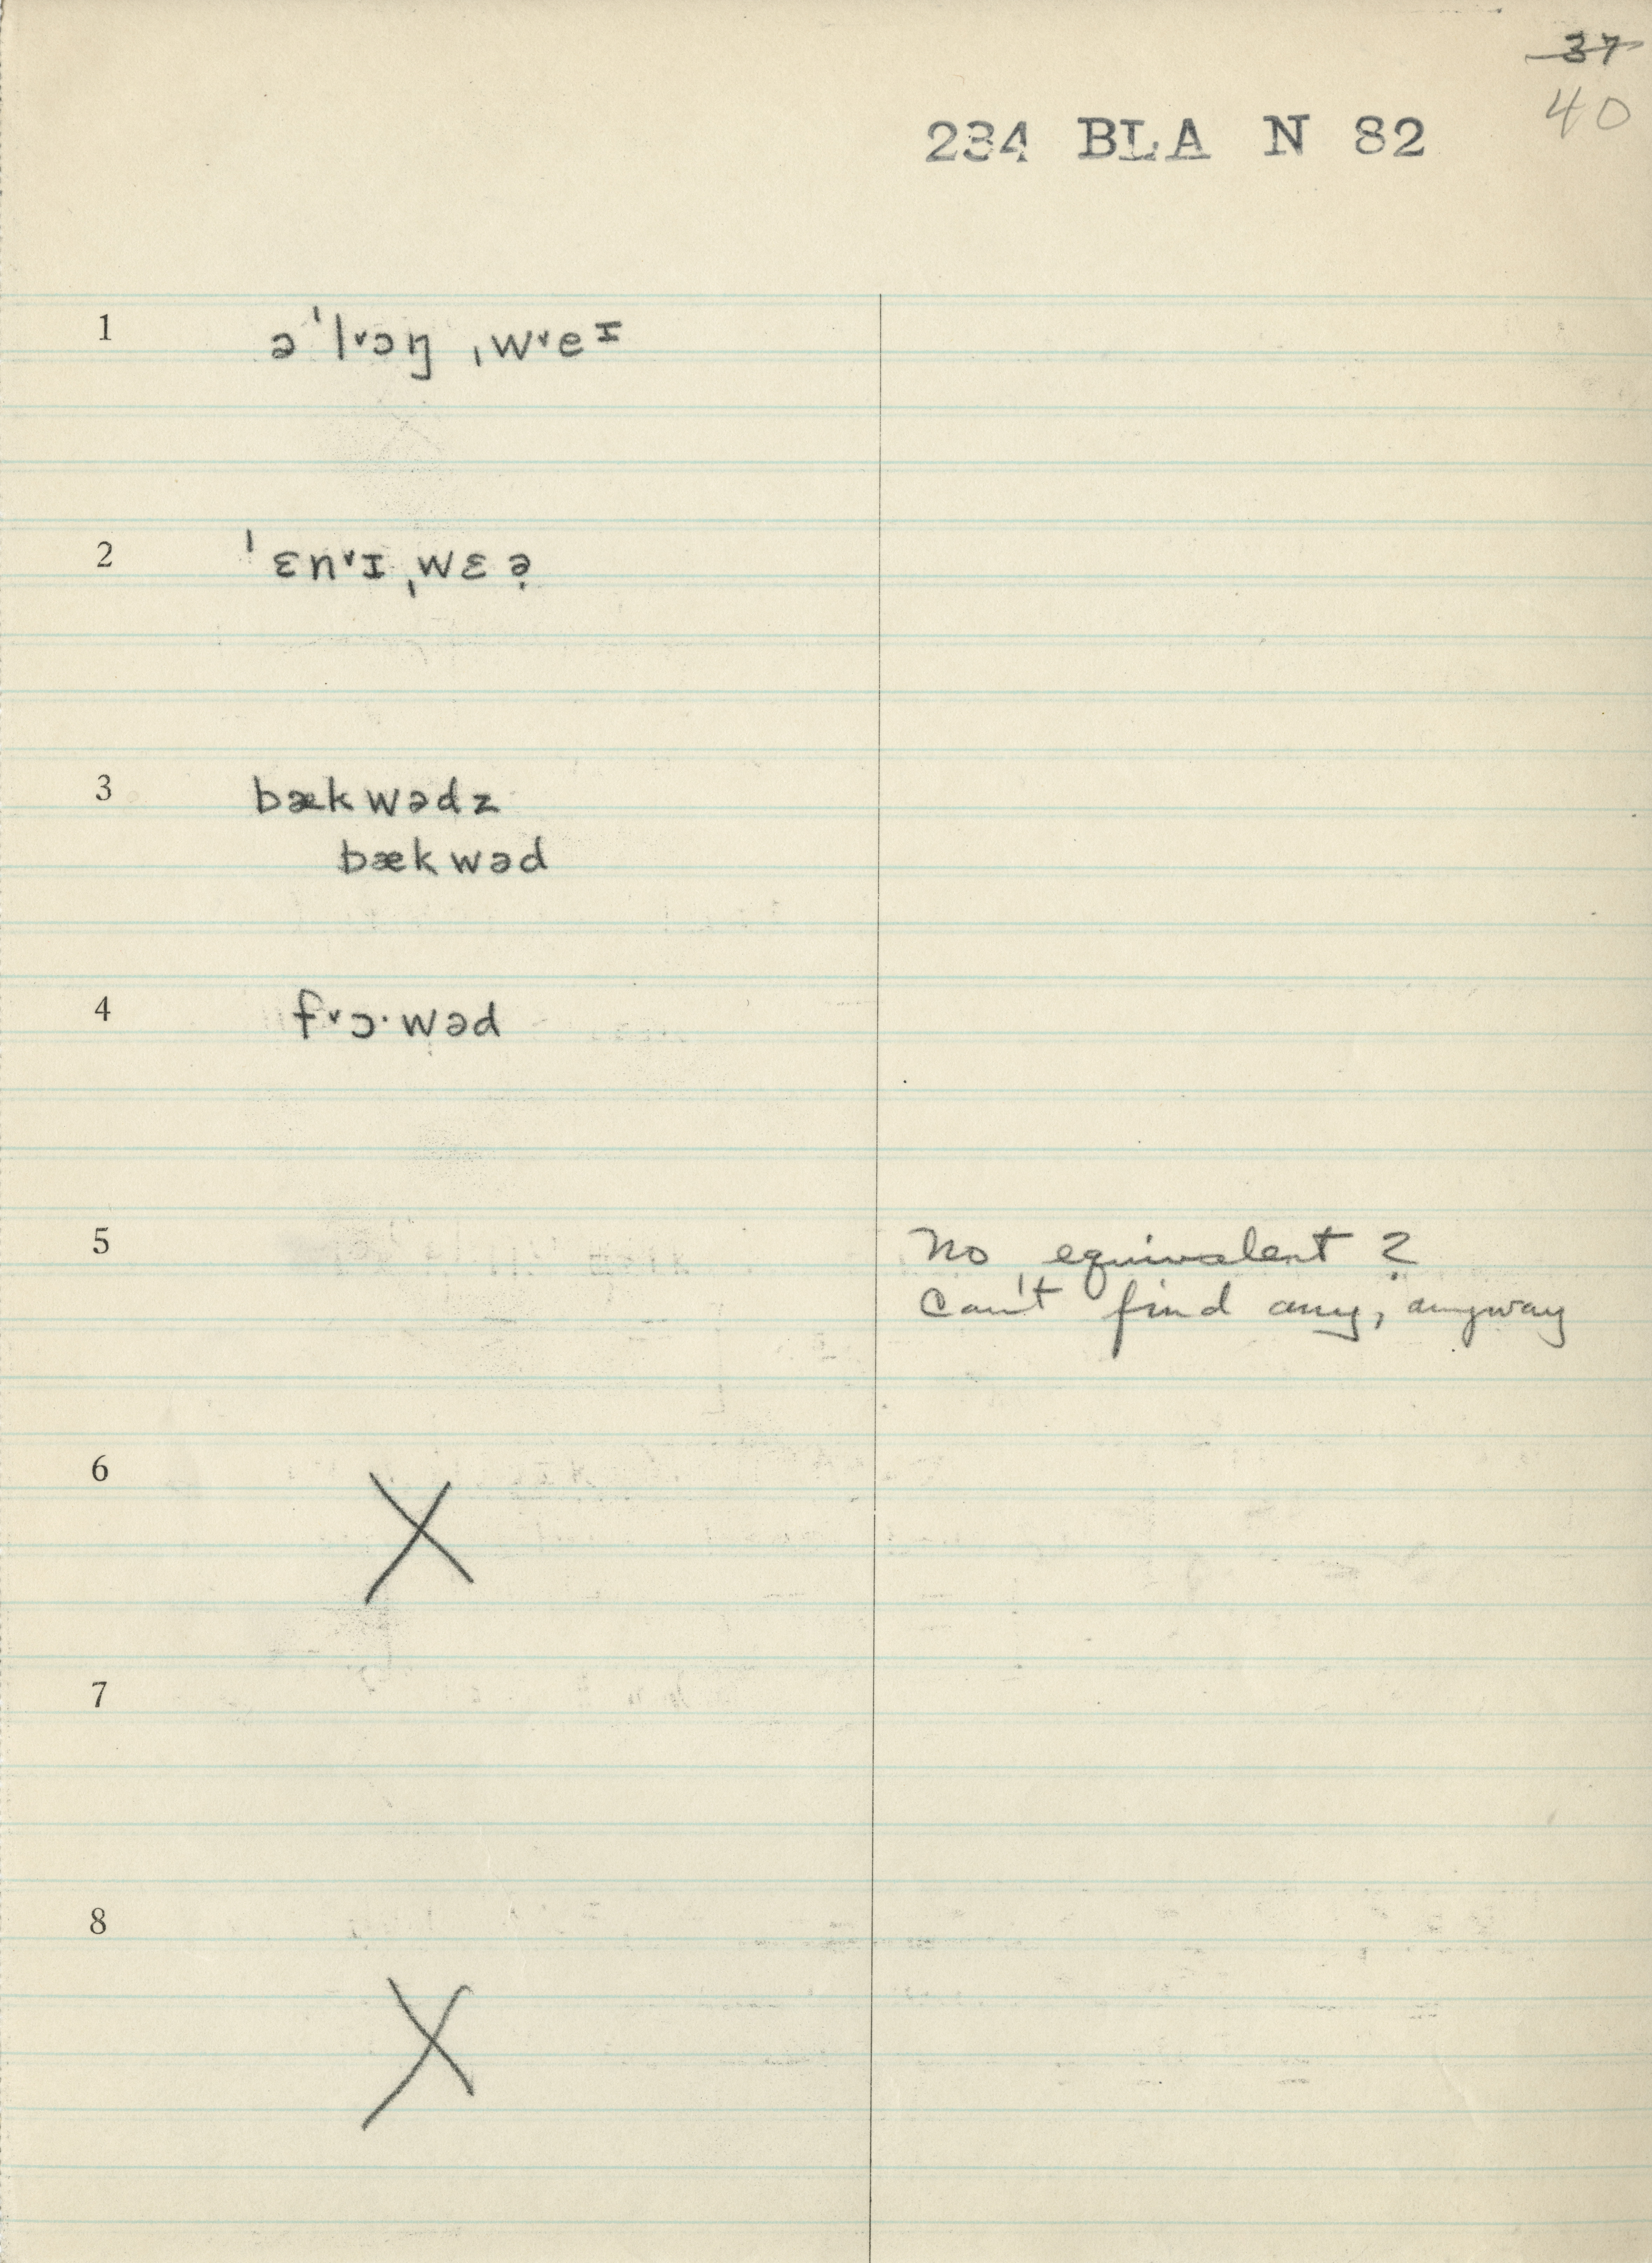 ~~37~~
40
234 BLA N 82
1 əˈlᵛɔŋ ˌwᵛeᶦ
2 ˈɛnᵛɪˌwɛə̣
3 bækwədz
bækwəd
4 fᵛɔ·wəd
5 No equivalent?
Can't find any, anyway
6 X
7
8 X